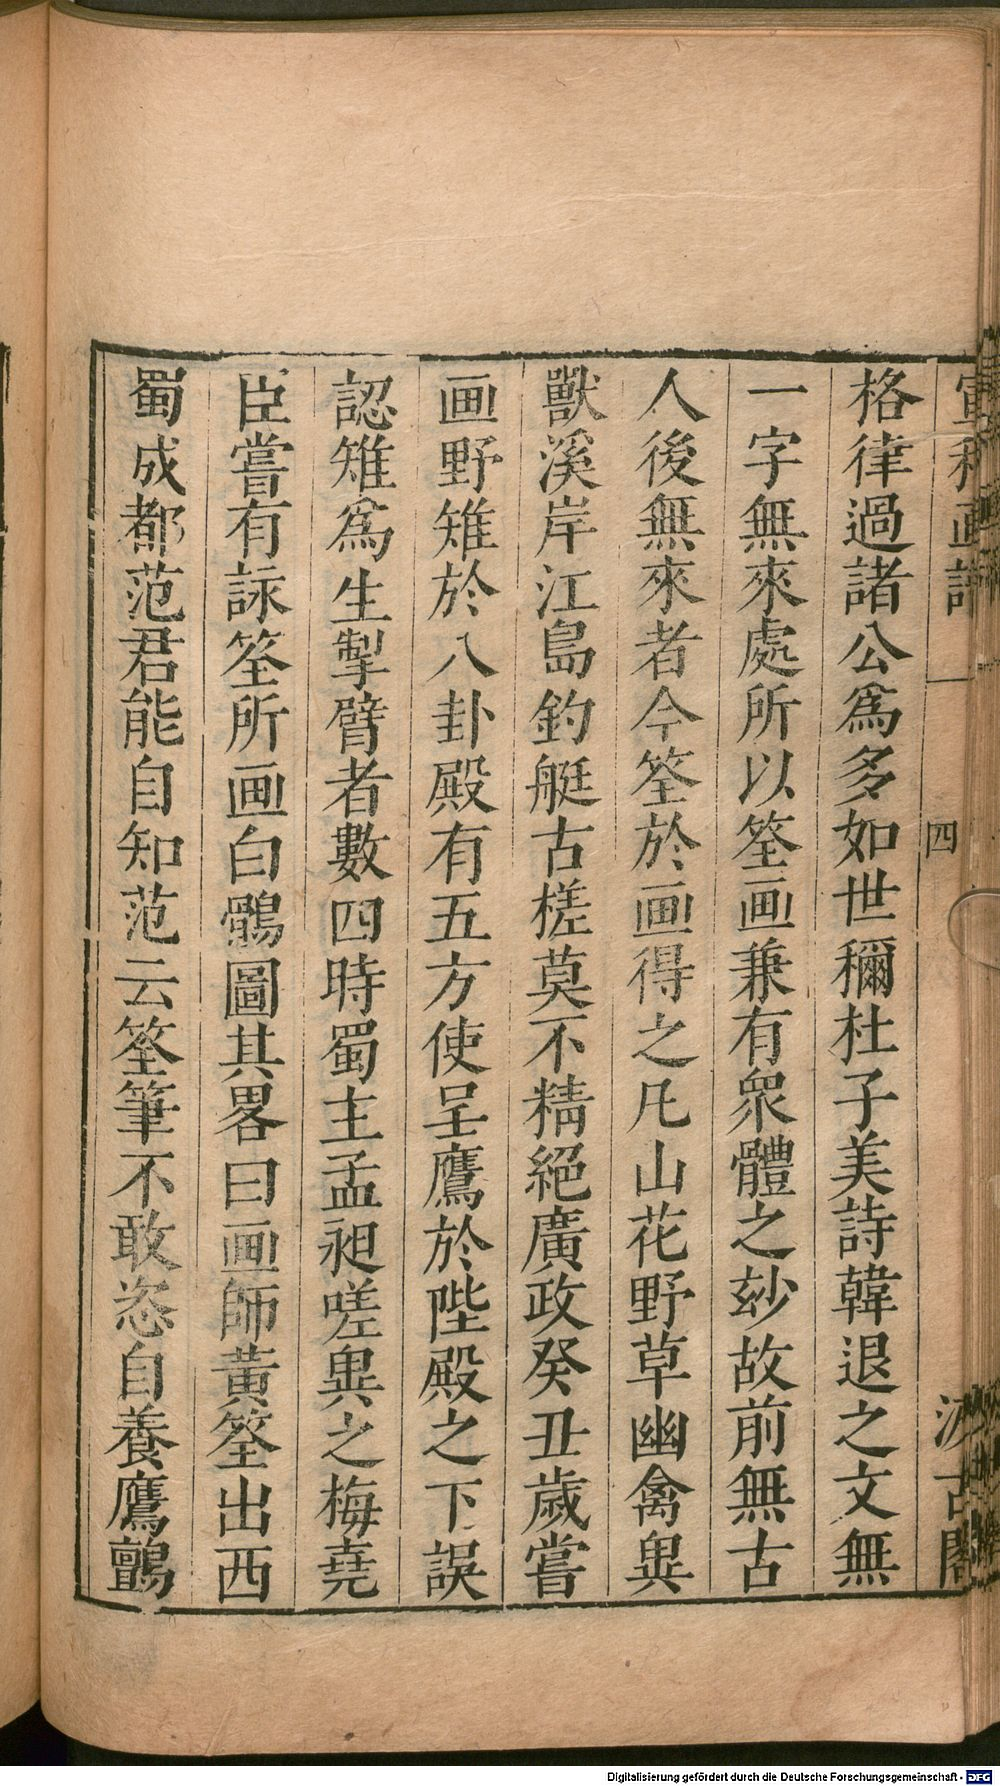 宣和画譜 四 汲古閣
格律過諸公爲多如世穪杜子美詩韓退之文無
一字無來處所以筌画兼有衆體之玅故前無古
人後無來者今筌於画得之凡山花野草幽禽異
獸溪岸江島釣艇古槎莫不精絕廣政癸丑歲嘗
画野雉於八卦殿有五方使呈鷹於陛殿之下誤
認雉爲生掣臂者數四時蜀主孟昶嗟異之梅堯
臣嘗有詠筌所画白鶻圖其畧曰画師黄筌出西
蜀成都范君能自知范云筌筆不敢恣自養鷹鸇
Digitalisierung gefördert durch die Deutsche Forschungsgemeinschaft - DFG